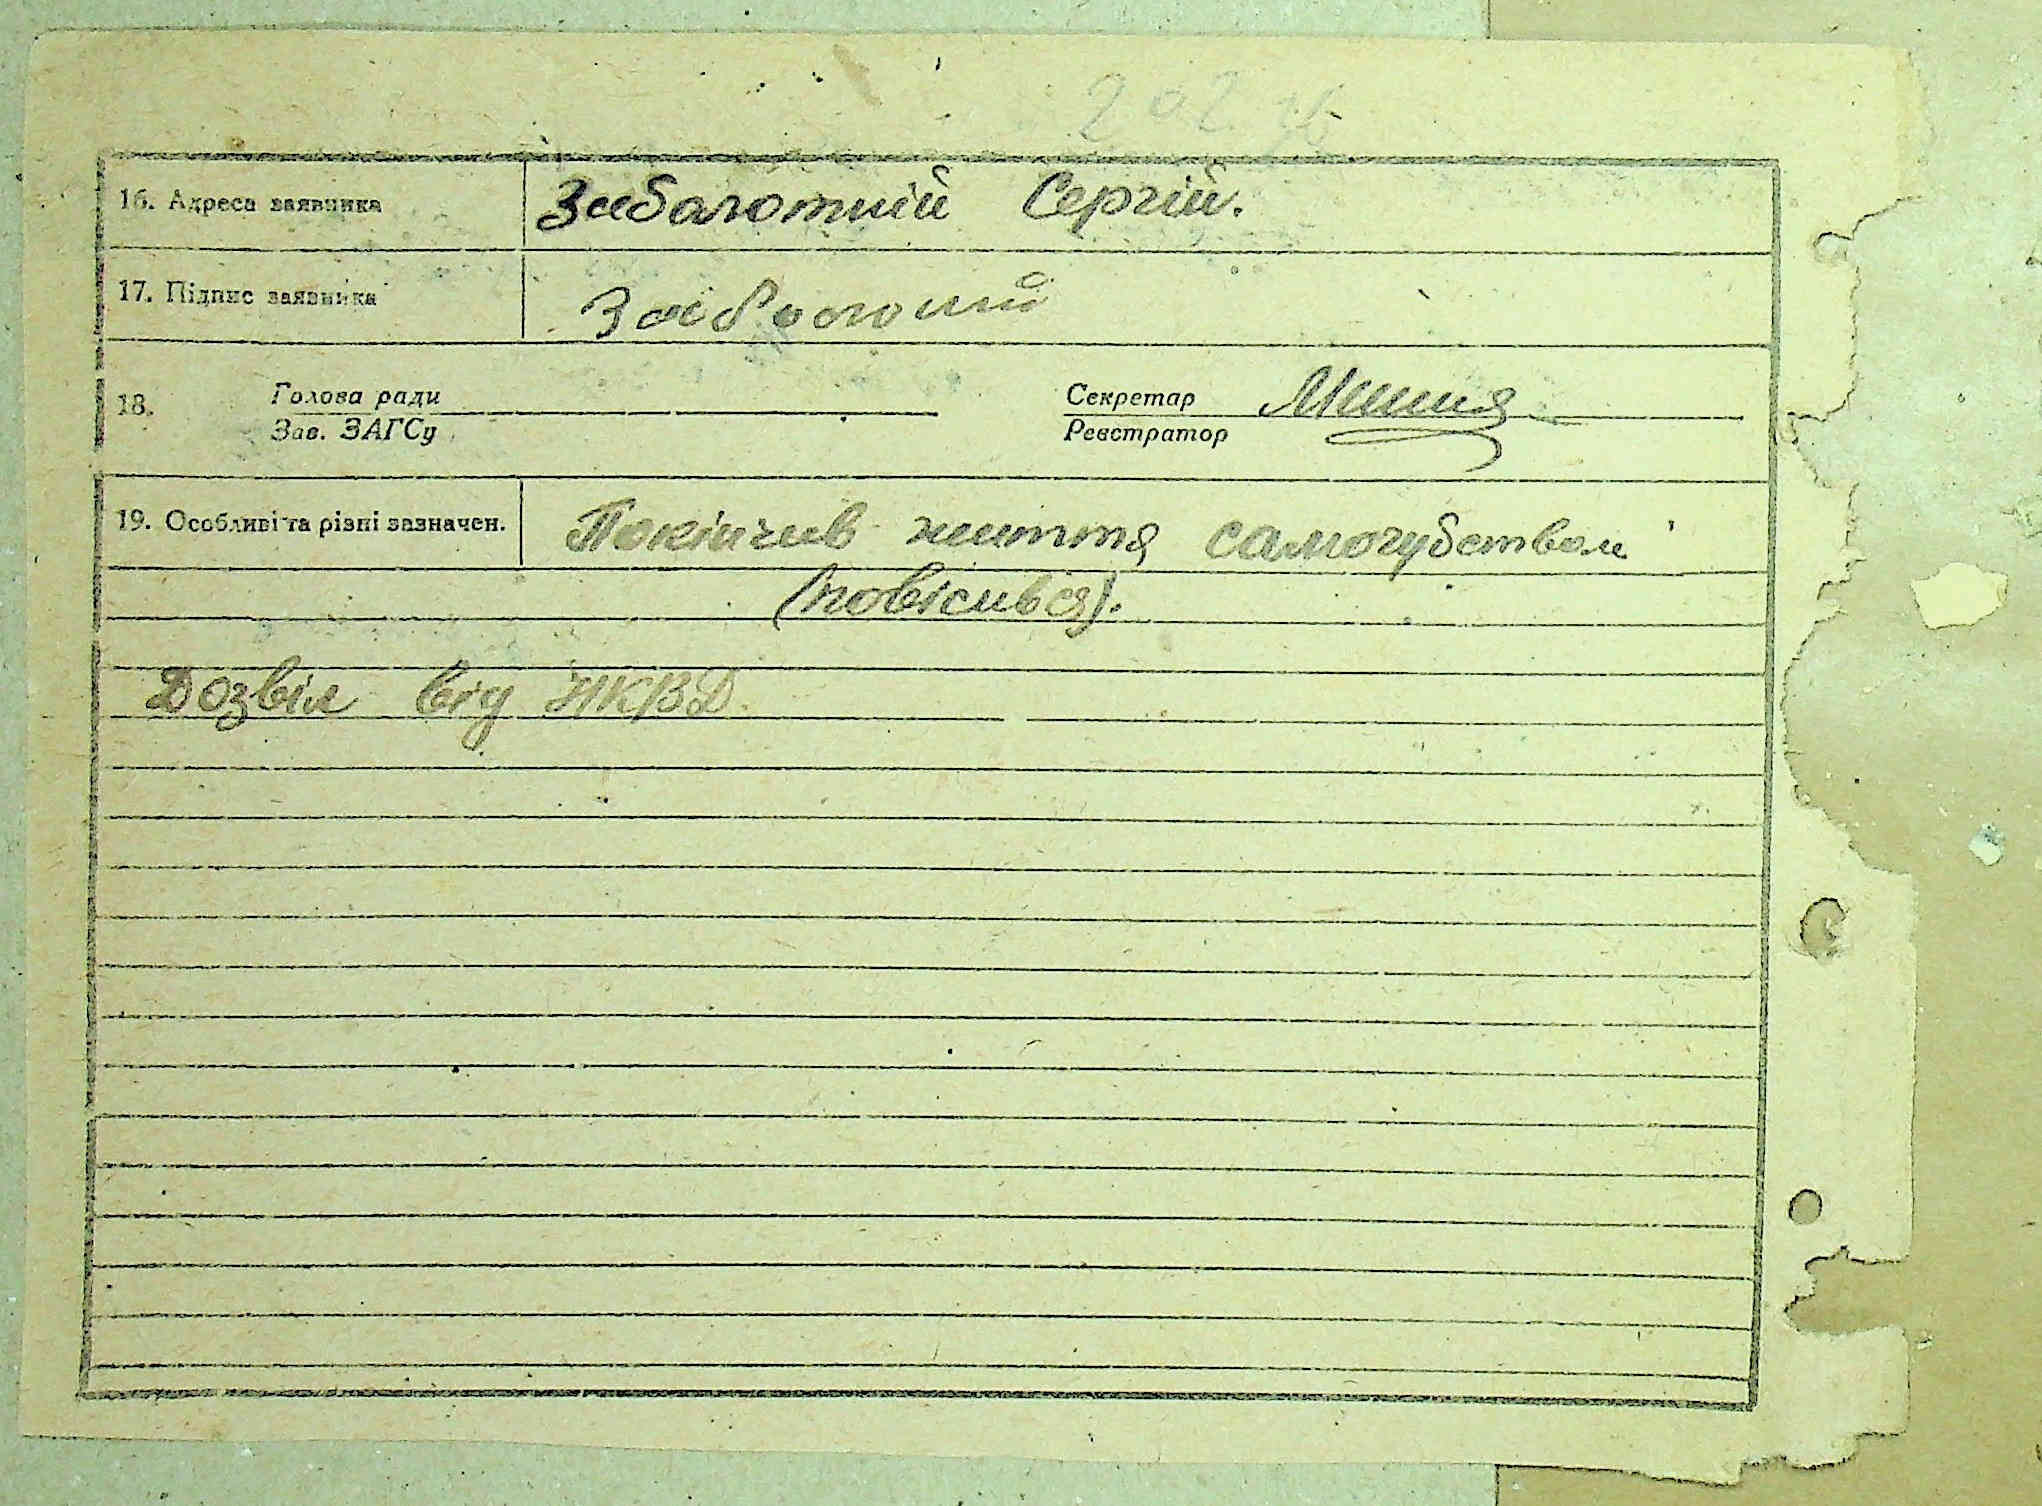 202 зв
16. Адреса заявника Заболотний Сергій.
17. Підпис заявника
18. Голова ради Секретар
Зав. ЗАГСу Реєстратор
19. Особливі та різні зазначен. Покінчив життя самогубством
(повісився).
Дозвіл від НКВД.